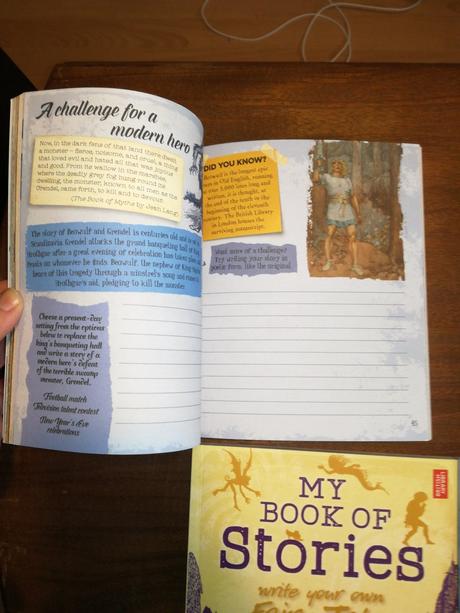 A challenge for a
modern hero
Now, in the dark fens of that land there dwelt
a monster – fierce, noisome, and cruel, a thing
that loved evil and hated all that was joyous
and good. From its wallow in the marshes,
where the deadly grey fog hung round its
dwelling, the monster, known to all men as the
Grendel, came forth, to kill and to devour.
(The Book of Myths by Jean Lang)
The story of Beowulf and Grendel is centuries old and is set in
Scandinavia. Grendel attacks the grand banqueting hall of King
Hrothgar after a great evening of celebration has taken place and
feasts on whomever he finds. Beowulf, the nephew of King
hears of this tragedy through a minstrel's song and comes to
Hrothgar's aid, pledging to kill the monster.
Choose a present-day
setting from the options
below to replace the
king's banqueting hall
and write a story of a
modern hero's defeat
of the terrible swamp
monster, Grendel.
Football match
Television talent contest
New Year's Eve
celebrations
DID YOU KNOW?
Beowulf is the longest epic
in Old English, running
over 3,000 lines long and
written, it is thought, at
the end of the tenth or the
beginning of the eleventh
century. The British Library
in London houses the
surviving manuscript.
Want more of a challenge?
Try writing your story in
poetic form, like the original.
85
MY
BOOK OF
Stories
write your own
Fairy
LIBRARY